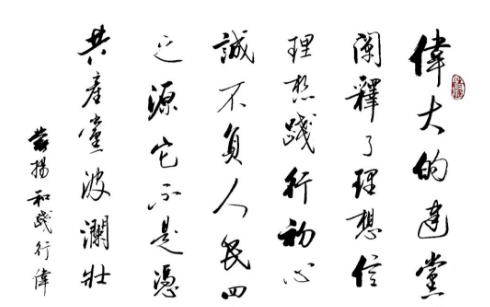 偉大的建黨
闡釋了理想信
理想踐行初心
誠不負人民四
之源它不是憑
共產黨波瀾壯
揚和踐行偉